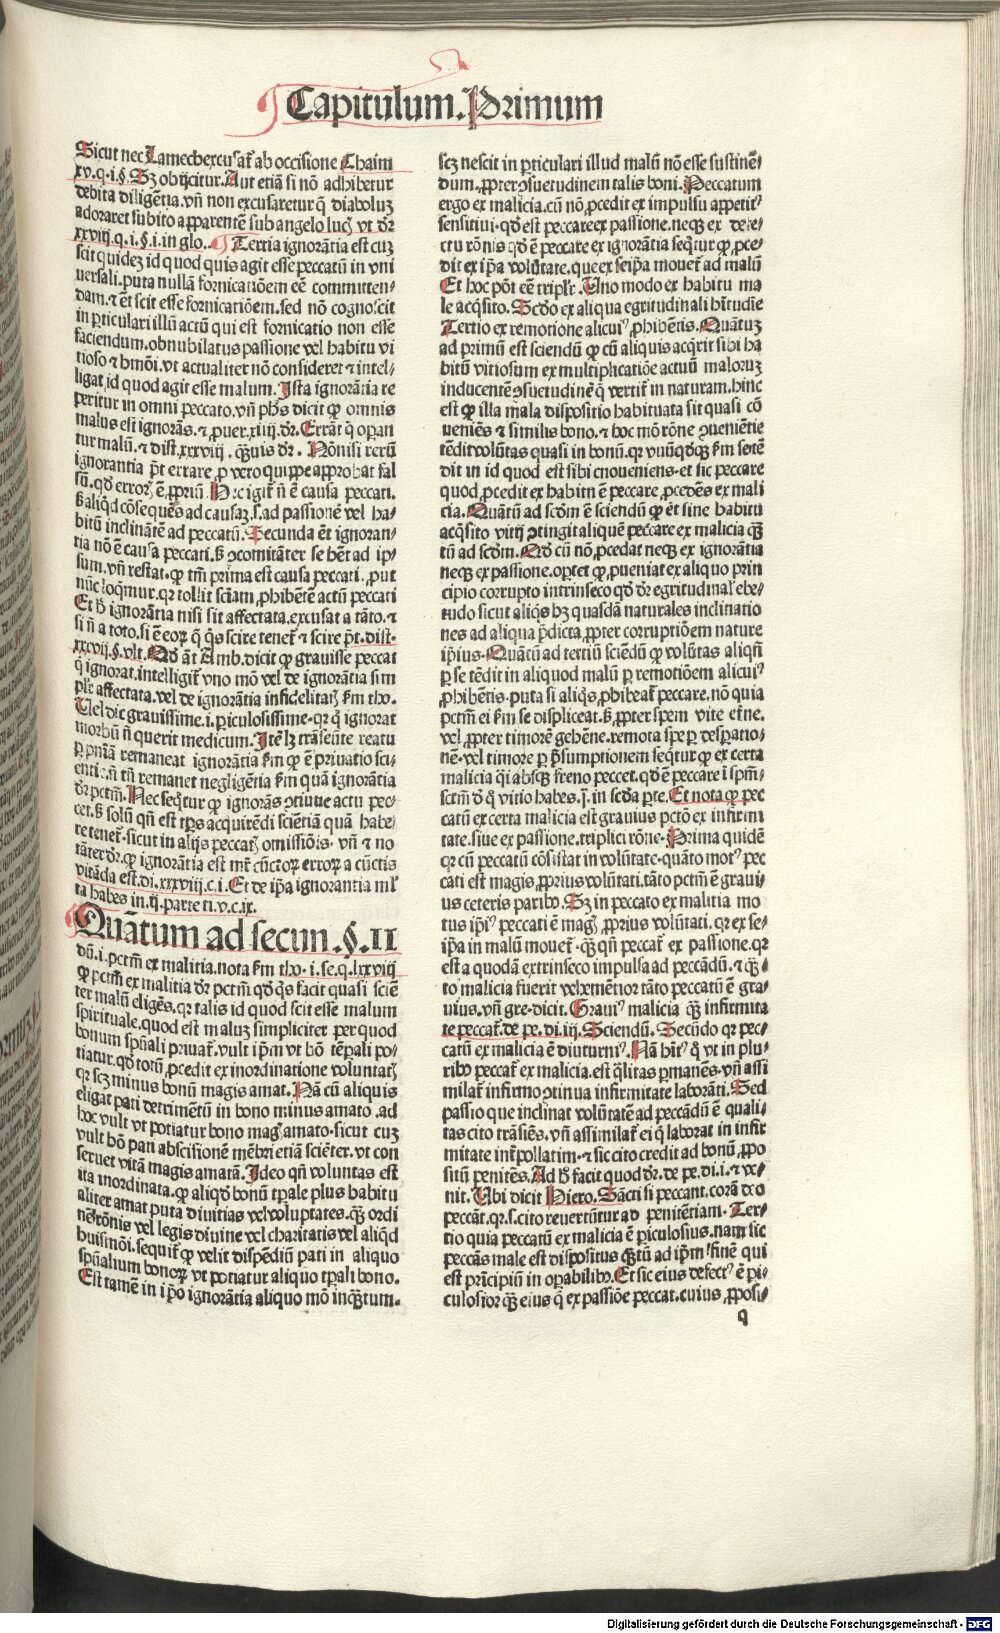 Capitulum. Primum
Sicut nec Lamech excusat̃ ab occisione Chaim
xv.q.i.§. Sꝫ obijcitur. Aut etiã si nõ adhibetur
debita diligẽtia. vñ non excusaretur ꝗ diaboluꝫ
adoraret subito apparentẽ sub angelo lucꝭ vt dr̃
xxviij.q.i.§.i. in glo.. ¶ Tertia ignorãtia est cuꝫ
scit quidez id quod quis agit esse peccatũ in vni
uersali. puta nullã fornicatiõem eẽ committen⸗
dam. ⁊ ẽt scit esse fornicatiõem. sed nõ cognoscit
in ꝑticulari illũ actũ qui est fornicatio non esse
faciendum. obnubilatus passione vel habitu vi
tioso ⁊ hmõi. vt actualiter nõ consideret ⁊ intel⸗
ligat id quod agit esse malum. Ista ignorãtia re
peritur in omni peccato. vñ pħs dicit ꝙ omnis
malus est ignorãs. ⁊ ꝓuer. xiiij. dr̃. Errãt ꝗ operan
tur malũ. ⁊ dist. xxxviij. ꝗ̃uis dr̃. Nõnisi rerũ
ignorantia p̃t errare. ꝓ vero quippe approbat fal
sũ. qđ erroꝛꝭ ẽ ꝓpriũ. Hec igit̃ ñ ẽ causa peccati.
ß aliqđ cõsequẽs ad causaꝫ. s. ad passionẽ vel ha⸗
bitũ inclinãtẽ ad peccatũ. Secunda ẽt ignoran⸗
tia nõ ẽ causa peccati. ß ꝯcomitãter se hẽt ad ip⸗
sum. vñ restat. ꝙ tm̃ prima est causa peccati. ꝓut
nũc loꝗmur. qr tollit sciam ꝓhibẽtẽ actũ peccati
Et ß ignorãtia nisi sit affectata. excusat a tãto. ⁊
si ñ a toto. si ẽ eoꝝ ꝗ ꝗs scire tenet̃ ⁊ scire p̃t. dist.
xxvij.§.vlt. Qđ aũt Amb. dicit ꝙ grauisse peccat
ꝗ ignorat. intelligit̃ vno mõ vel de ignorãtia sim
plr̃ affectata. vel de ignorãtia infidelitatꝭ ẜm tho.
Uel dic grauissime .i. ꝑiculosissime. qr ꝗ ignorat
morbũ ñ querit medicum. Itẽ lꝫ trãseũte reatu
ꝑ pñiã remaneat ignorãtia ẜm ꝙ ẽ priuatio sci⸗
entie. ñ tñ remanet negligẽtia ẜm quã ignorãtia
dr̃ pctm̃. Nec seꝗtur ꝙ ignorãs ꝯtinue actu pec⸗
cet. ß solũ qñ est tp̃s acquirẽdi sciẽtiã quã habe⸗
re tenet̃. sicut in alijs peccatꝭ omissiõis. vñ ⁊ no
tãter dr̃. ꝙ ignorãtia est mr̃ cũctoꝝ erroꝝ a cũctis
vitãda est. di. xxxviij.c.i. Et de ip̃a ignorantia ml̃
ta habes in .ij. parte ti.v.c.ix.
Quãtum ad secun .§.II
dũ .i. pctm̃ ex malitia. nota ẜm tho. i. se. q. lxxviij
ꝙ pctm̃ ex malitia dr̃ pctm̃ qđ ꝗs facit quasi sciẽ
ter malũ eligẽs. qr talis id quod scit esse malum
spirituale. quod est maluꝫ simpliciter per quod
bonum spũali priuat̃. vult ip̃m vt bõ tẽpali po⸗
tiatur. qđ totũ ꝓcedit ex inordinatione voluntatꝭ
qr scꝫ minus bonũ magis amat. Nã cũ aliquis
eligat pati detrimẽtũ in bono minus amato .ad
hoc vult vt potiatur bono magꝭ amato. sicut cuꝫ
vult hõ pati abscisionẽ mẽbri etiã sciẽter. vt con
seruet vitã magis amatã. Ideo qñ voluntas est
ita inordinata. ꝙ aliqđ bonũ tp̃ale plus habitu
aliter amat puta diuitias vel voluptates. ꝗ̃ ordi
nẽ rõnis vel legis diuine vel charitatis vel aliqđ
huiusmõi. sequit̃ ꝙ velit dispẽdiũ pati in aliquo
spũalium bonoꝝ vt potiatur aliquo tp̃ali bono.
Est tamẽ in ip̃o ignorãtia aliquo mõ inꝗ̃tum.
scꝫ nescit in ꝑticulari illud malũ nõ esse sustinẽ⸗
dum. ꝓpter ꝯsuetudinem talis boni. Peccatum
ergo ex malicia. cũ nõ ꝓcedit ex impulsu appetitꝰ
sensitiui. qđ est peccare ex passione. neqꝫ ex defe⸗
ctu rõnis qđ ẽ peccare ex ignorãtia seꝗtur ꝙ ꝓce⸗
dit ex ip̃a volũtate. que ex seip̃a mouet̃ ad malũ
Et hoc põt eẽ triplr̃. Uno modo ex habitu ma
le acꝗsito. Scđo ex aliqua egritudinali hitudĩe
Tertio ex remotione alicuiꝰ ꝓhibẽtis. Quãtuꝫ
ad primũ est sciendũ ꝙ cũ aliquis acꝗrit sibi ha
bitũ vitiosum ex multiplicatiõe actuũ maloruꝫ
inducentẽ ꝯsuetudinẽ ꝗ vertit̃ in naturam. hinc
est ꝙ illa mala dispositio habituata sit quasi cõ
ueniẽs ⁊ similis bono. ⁊ hoc mõ rõne ꝯueniẽtie
tẽdit volũtas quasi in bonũ. qr vnũqđqꝫ ẜm se tẽ
dit in id quod est sibi cnoueniens. et sic peccare
quod ꝓcedit ex habitu ẽ peccare ꝓcedẽs ex mali
cia. Quãtũ ad scđm ẽ sciendũ ꝙ ẽt sine habitu
acꝗsito vitij ꝯtingit aliquẽ peccare ex malicia ꝗ̃
tũ ad scđm. Qđ cũ nõ ꝓcedat neqꝫ ex ignorãtia
neqꝫ ex passione. oꝑtet ꝙ ꝓueniat ex aliquo prin
cipio corrupto intrinseco qđ dr̃ egritudinal̃ ebe⸗
tudo sicut aliꝗs hꝫ quasdã naturales inclinatio
nes ad aliqua p̃dicta. ꝓpter corruptiõem nature
ip̃ius. Quãtũ ad tertiũ sciẽdũ ꝙ volũtas aliqñ
ꝑ se tẽdit in aliquod malũ ꝑ remotiõem alicuiꝰ
ꝓhibẽtis. puta si aliꝗs ꝓhibeat̃ peccare. nõ quia
pctm̃ ei ẜm se displiceat. ß ꝓpter spem vite et̃ne.
vel ꝓpter timorẽ gebẽne. remota spe ꝑ desꝑatio⸗
nẽ. vel timore ꝑ p̃sumptionem seꝗtur ꝙ ex certa
malicia ꝗ̃i absqꝫ freno peccet. qđ ẽ peccare ĩ spm̃⸗
sctm̃ đ ꝗ vitio habes .j. in scđa ꝑte. Et nota ꝙ pec
catũ ex certa malicia est grauius pctõ ex infirmi
tate. siue ex passione. triplici rõne. Prima quidẽ
qr cũ peccatũ cõsistat in volũtate. quãto motꝰ pec
cati est magis ꝓprius volũtati. tãto pctm̃ ẽ graui⸗
us ceteris paribꝰ. Sꝫ in peccato ex malitia mo
tus ip̃iꝰ peccati ẽ magꝭ ꝓprius volũtati. qr ex se⸗
ip̃a in malũ mouet̃. ꝗ̃ qñ peccat̃ ex passione. qr
est a quodã extrinseco impulsa ad peccãdũ. ⁊ ꝗ̃⸗
to malicia fuerit vehemẽtior tãto peccatũ ẽ gra⸗
uius. vñ gre. dicit. Grauiꝰ malicia ꝗ̃ infirmita
te peccat̃. de pe. di. iij. Sciendũ. Secũdo qr pec⸗
catũ ex malicia ẽ diuturniꝰ. Nã hitꝰ ꝗ vt in plu⸗
ribꝰ peccat̃ ex malicia. est ꝗlitas ꝑmanẽs. vñ assi
milat̃ infirmo ꝯtinua infirmitate laborãti. Sed
passio que inclinat volũtatẽ ad peccãdũ ẽ quali⸗
tas cito trãsiẽs. vñ assimilat̃ ei ꝗ laborat in infir
mitate int̃pollatim. ⁊ sic cito credit ad bonũ ꝓpo
sitũ penitẽs. Ad ß facit quod dr̃. de pe. di. i. ⁊ ve⸗
nit. Ubi dicit Hiero. Sãcti si peccant. corã deo
peccãt. qr .s. cito reuertũtur ad peniẽtiam. Ter⸗
tio quia peccatũ ex malicia ẽ ꝑiculosius. nam sic
peccãs male est dispositus ꝗ̃tũ ad ip̃m finẽ qui
est prĩcipiũ in oꝑabilibꝰ. Et sic eius defectꝰ ẽ ꝑi⸗
culosior ꝗ̃ eius ꝗ ex passiõe peccat. cuius ꝓposi⸗
q
Digitalisierung gefördert durch die Deutsche Forschungsgemeinschaft - DFG